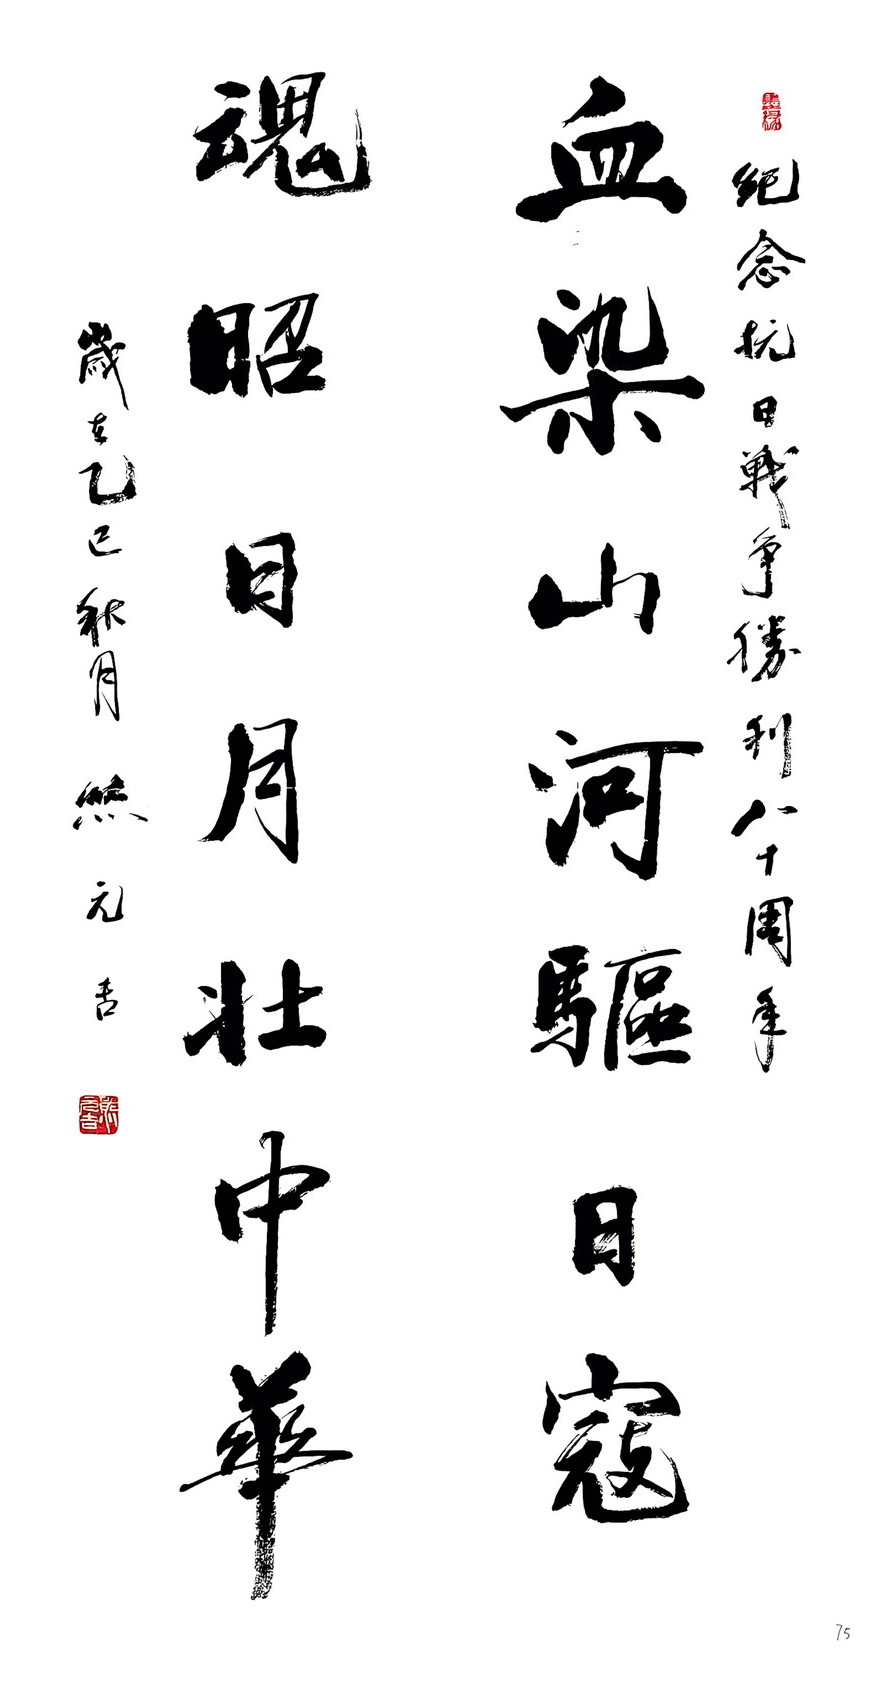 紀念抗日戰爭勝利八十周年
血染山河驅日寇
魂昭日月壯中華
歲在乙巳秋月 熊元吉
75